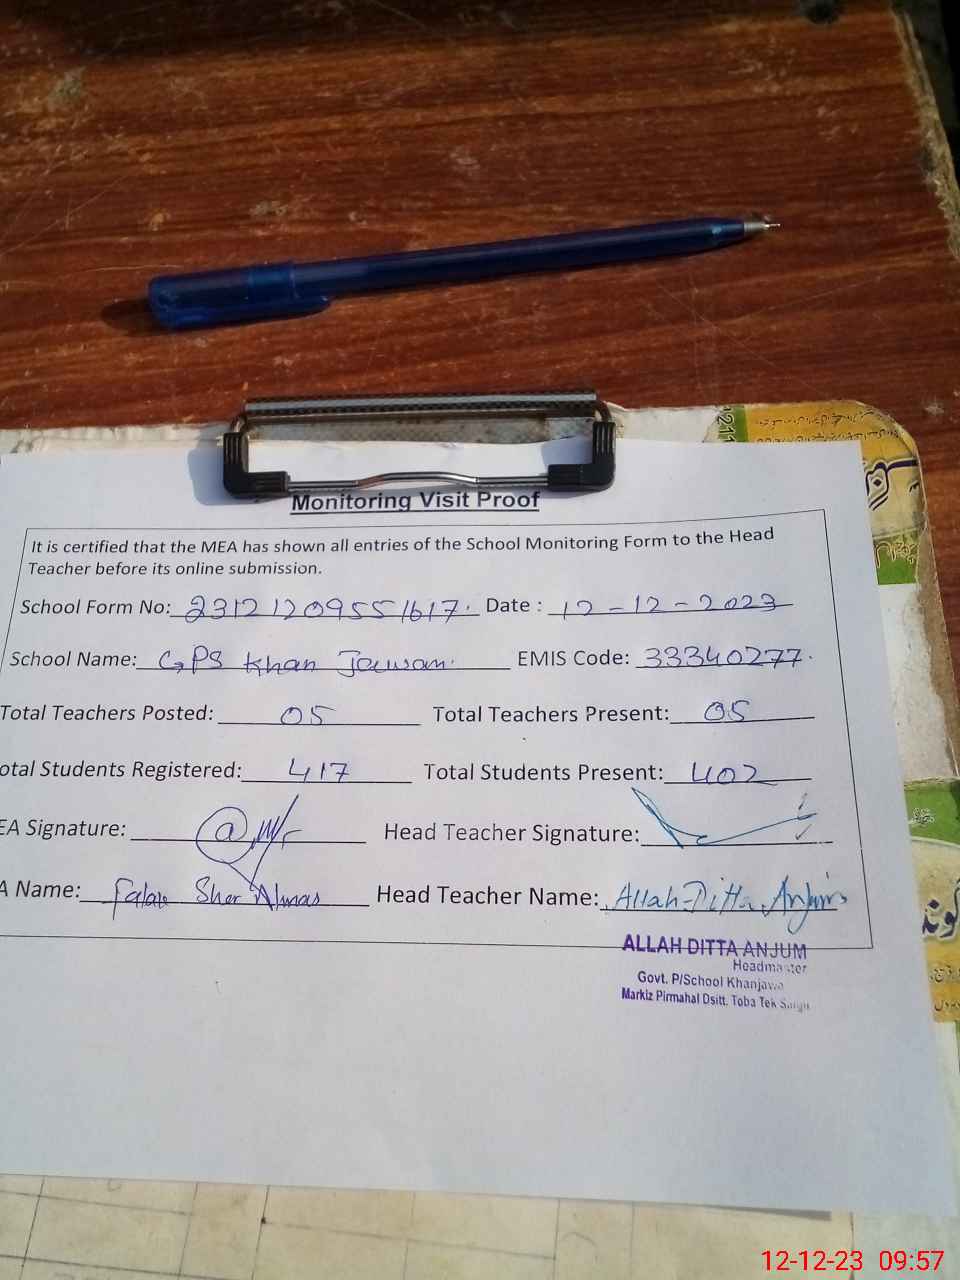 Monitoring Visit Proof
It is certified that the MEA has shown all entries of the School Monitoring Form to the Head
Teacher before its online submission.
School Form No: 231212095516​17. Date : 12-12-2023
School Name: GPS Khan Jawan. EMIS Code: 33340277.
Total Teachers Posted: 05 Total Teachers Present: 05
otal Students Registered: 417 Total Students Present: 402
EA Signature: Head Teacher Signature:
A Name: Falak Sher Almas Head Teacher Name: Allah-Ditta Anjum
ALLAH DITTA ANJUM
Headmaster
Govt. P/School Khanjawa
Markiz Pirmahal Dsitt. Toba Tek Singh
12-12-23 09:57